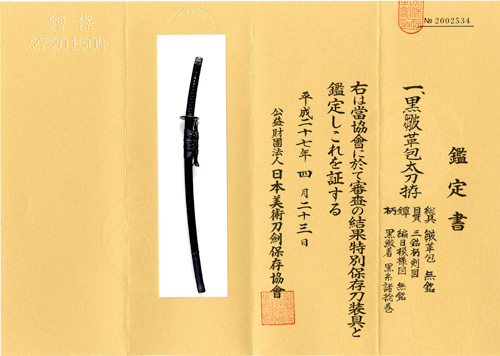 № 2002534
鑑定書
一、黒皺革包太刀拵
総具 皺革包 無銘
目貫 三鈷柄剣図
鐔 編目模様図 無銘
柄 黒鮫着 黒糸諸捻巻
右は當協會に於て審査の結果特別保存刀装具と
鑑定しこれを証する
平成二十七年 四月二十三日
公益財團法人 日本美術刀劍保存協會